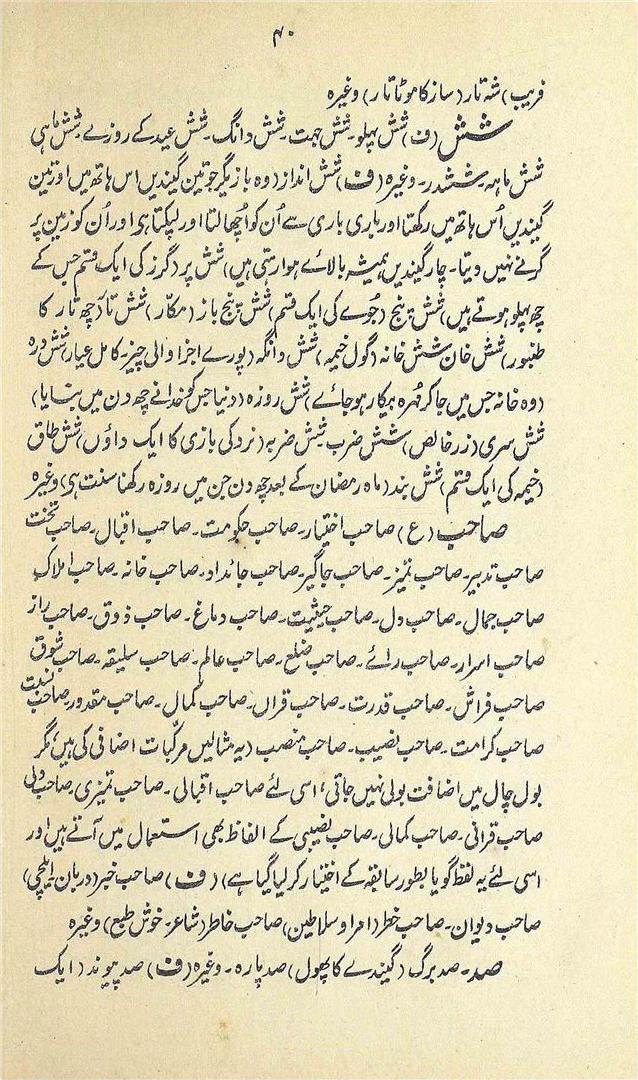 ۴۰
فریب) شہ تار (ساز کا موٹا تار) وغیرہ
شش (ف) شش پہلو۔ شش جہت۔ شش دانگ۔ شش عید کے روزے۔ شش ماہی
شش ماہہ۔ ششدر۔ وغیرہ (ف) شش انداز (وہ بازیگر جو تین گیندیں اس ہاتھ میں اور تین
گیندیں اُس ہاتھ میں رکھتا اور باری باری سے اُن کو اُچھالتا اور لپکتا ہی اور اُن کو زمین پر
گرنے نہیں دیتا۔ چار گیندیں ہمیشہ بالائے ہوا رہتی ہیں) شش پر (گرز کی ایک قسم جس کے
چھ پہلو ہوتے ہیں) شش پنج (جوے کی ایک قسم) شش پنج باز (مکار) شش تار (چھ تار کا
طنبور) شش خان شش خانہ (گول خیمہ) شش دانگہ (پورے اجزا والی چیز۔ کامل عیار) شش درہ
(وہ خانہ جس میں جا کر مُہرہ بیکار ہو جائے) شش روزہ (دنیا جس کو خدا نے چھ دن میں بنایا)
شش سری (زر خالص) شش ضرب شش ضربہ (نرد کی بازی کا ایک داؤں) شش طاق
(خیمہ کی ایک قسم) شش بند (ماہ رمضان کے بعد چھ دن جن میں روزہ رکھنا سنت ہی) وغیرہ
صاحب (ع) صاحب اختیار۔ صاحب حکومت۔ صاحب اقبال۔ صاحب تخت
صاحب تدبیر۔ صاحب تمیز۔ صاحب جاگیر۔ صاحب جائداد۔ صاحب خانہ۔ صاحب املاک
صاحب جمال۔ صاحب دل۔ صاحب حیثیت۔ صاحب دماغ۔ صاحب ذوق۔ صاحب راز
صاحب اسرار۔ صاحب رائے۔ صاحب ضلع۔ صاحب عالم۔ صاحب سلیقہ۔ صاحب شوق
صاحب فراش۔ صاحب قدرت۔ صاحب قراں۔ صاحب کمال۔ صاحب مقدور۔ صاحب نسبت
صاحب کرامت۔ صاحب نصیب۔ صاحب منصب (یہ مثالیں مرکّبات اضافی کی ہیں، مگر
بول چال میں اضافت بولی نہیں جاتی، اسی لئے صاحب اقبالی۔ صاحب تمیزی۔ صاحب دلی
صاحب قرانی۔ صاحب کمالی۔ صاحب نصیبی کے الفاظ بھی استعمال میں آتے ہیں اور
اسی لئے یہ لفظ گویا بطور سابقہ کے اختیار کر لیا گیا ہے) (ف) صاحب خبر (دربان۔ ایلچی)
صاحب دیوان۔ صاحب خطر (امرا و سلاطین) صاحب خاطر (شاعر۔ خوش طبع) وغیرہ
صد۔ صد برگ (گیندے کا پھول) صد پارہ۔ وغیرہ (ف) صد پیوند (ایک